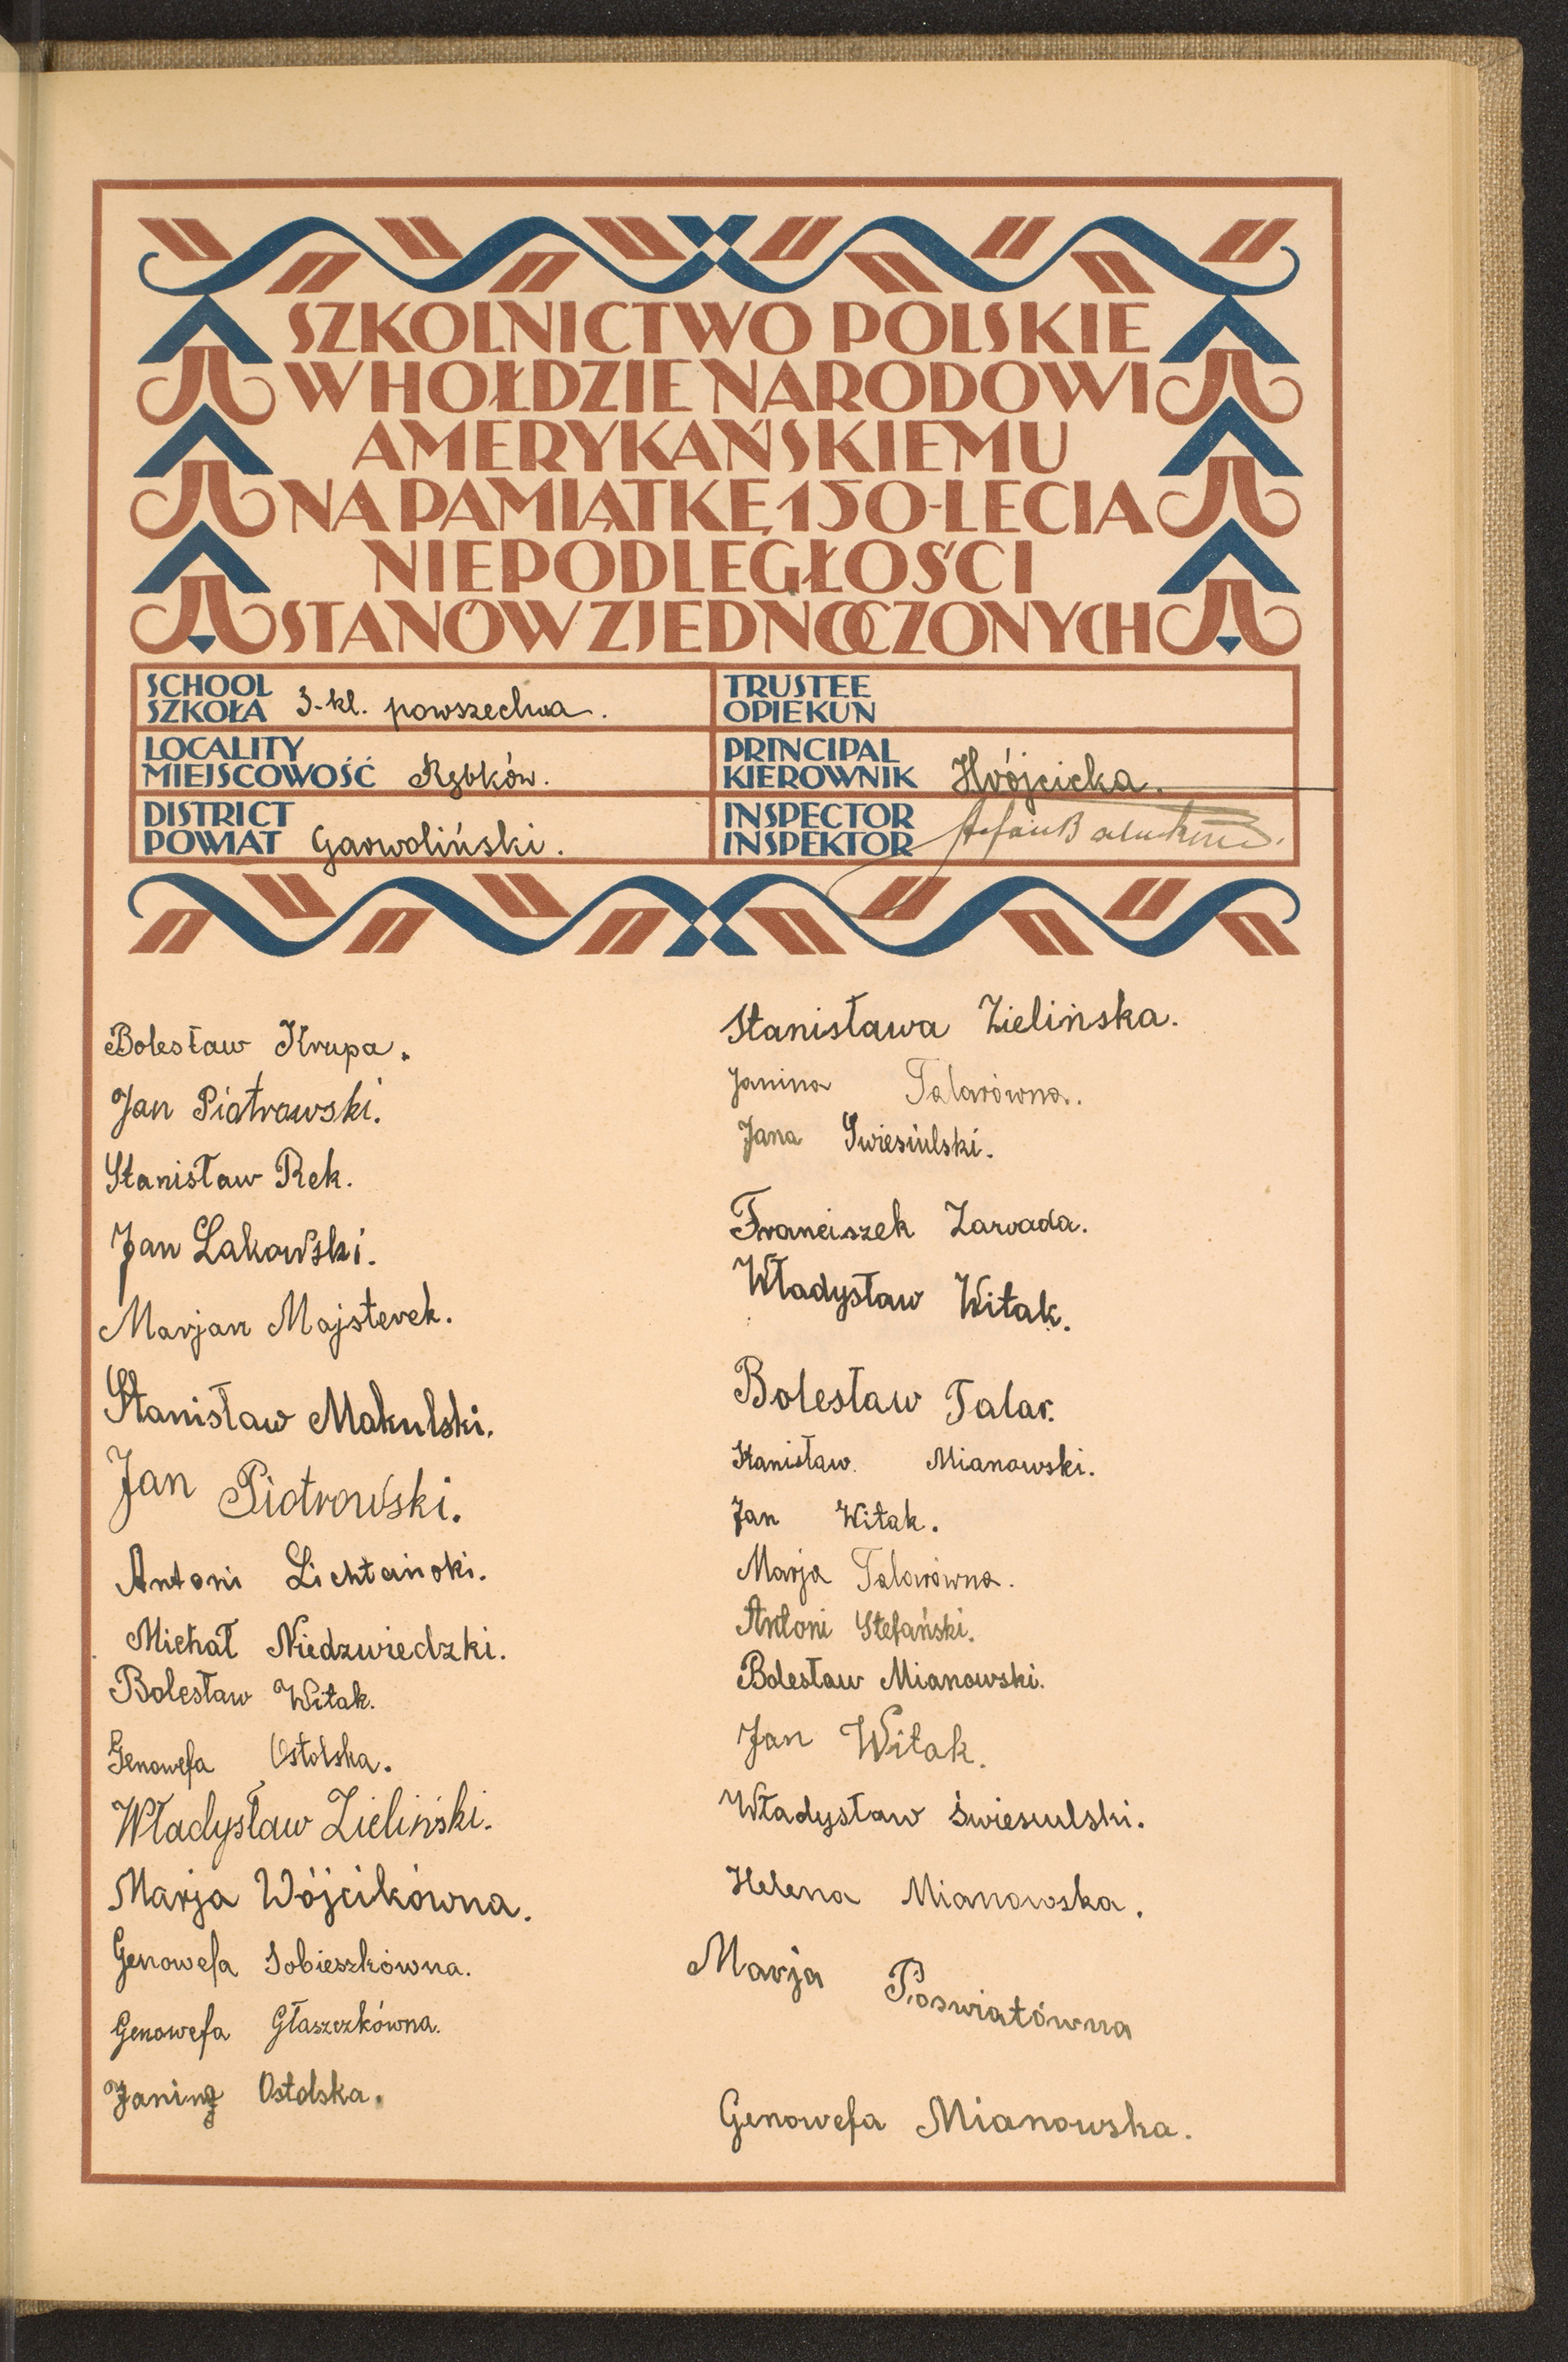 SZKOLNICTWO POLSKIE
W HOŁDZIE NARODOWI
AMERYKAŃSKIEMU
NA PAMIĄTKĘ 150-LECIA
NIEPODLEGŁOŚCI
STANÓW ZJEDNOCZONYCH
SCHOOL
SZKOŁA 3-kl. powszechna.
TRUSTEE
OPIEKUN
LOCALITY
MIEJSCOWOŚĆ Rębków.
PRINCIPAL
KIEROWNIK HWójcicka.
DISTRICT
POWIAT Garwoliński.
INSPECTOR
INSPEKTOR Stefan
Bolesław Krupa.
Jan Piotrowski.
Stanisław Rek.
Jan Lakowski.
Marjan Majsterek.
Stanisław Makulski.
Jan Piotrowski.
Antoni
Michał Niedzwiedzki.
Bolesław Witak.
Genowefa Ostolska.
Władysław Zieliński.
Marja Wójcikówna.
Genowefa Sobieszkówna.
Genowefa Głaszczkówna.
Janina Ostolska.
Stanisława Zielińska.
Janina Talarówna.
Jana Swiesiulski.
Franciszek Zawada.
Władysław Witak.
Bolesław Talar.
Stanisław Mianowski.
Jan Witak.
Marja Talarówna.
Antoni Stefański.
Bolesław Mianowski.
Jan Witak.
Władysław Świesiulski.
Helena Mianowska.
Marja Poswiatówna
Genowefa Mianowska.